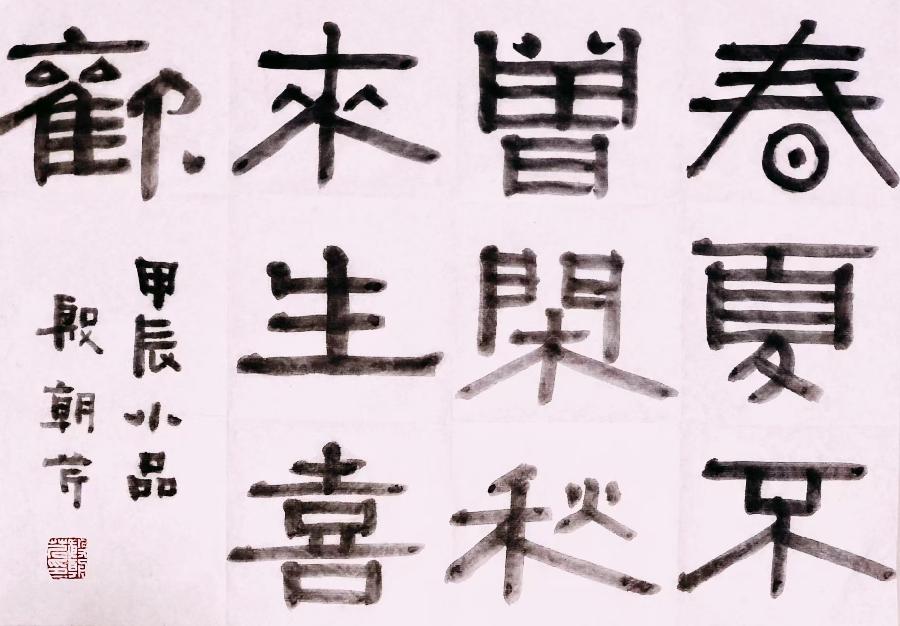 春夏不
曾閑秋
來生喜
歡
甲辰小品
殷朝芹